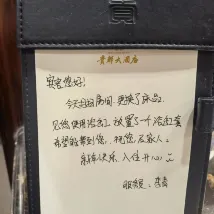 贵都大酒店
宾客您好!
今天打扫房间更换了床品。
见您使用浴缸,放置了一个浴缸套
希望能帮到您,祝您及家人。
新年快乐 入住开心
服务员: